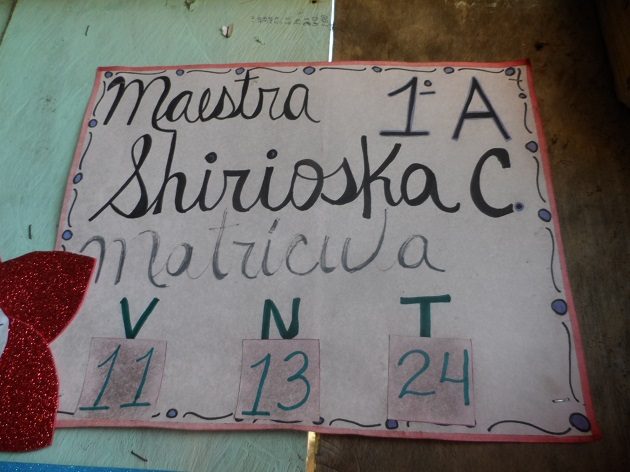 Maestra 1º A
Shirioska C.
Matrícula
V N T
11 13 24